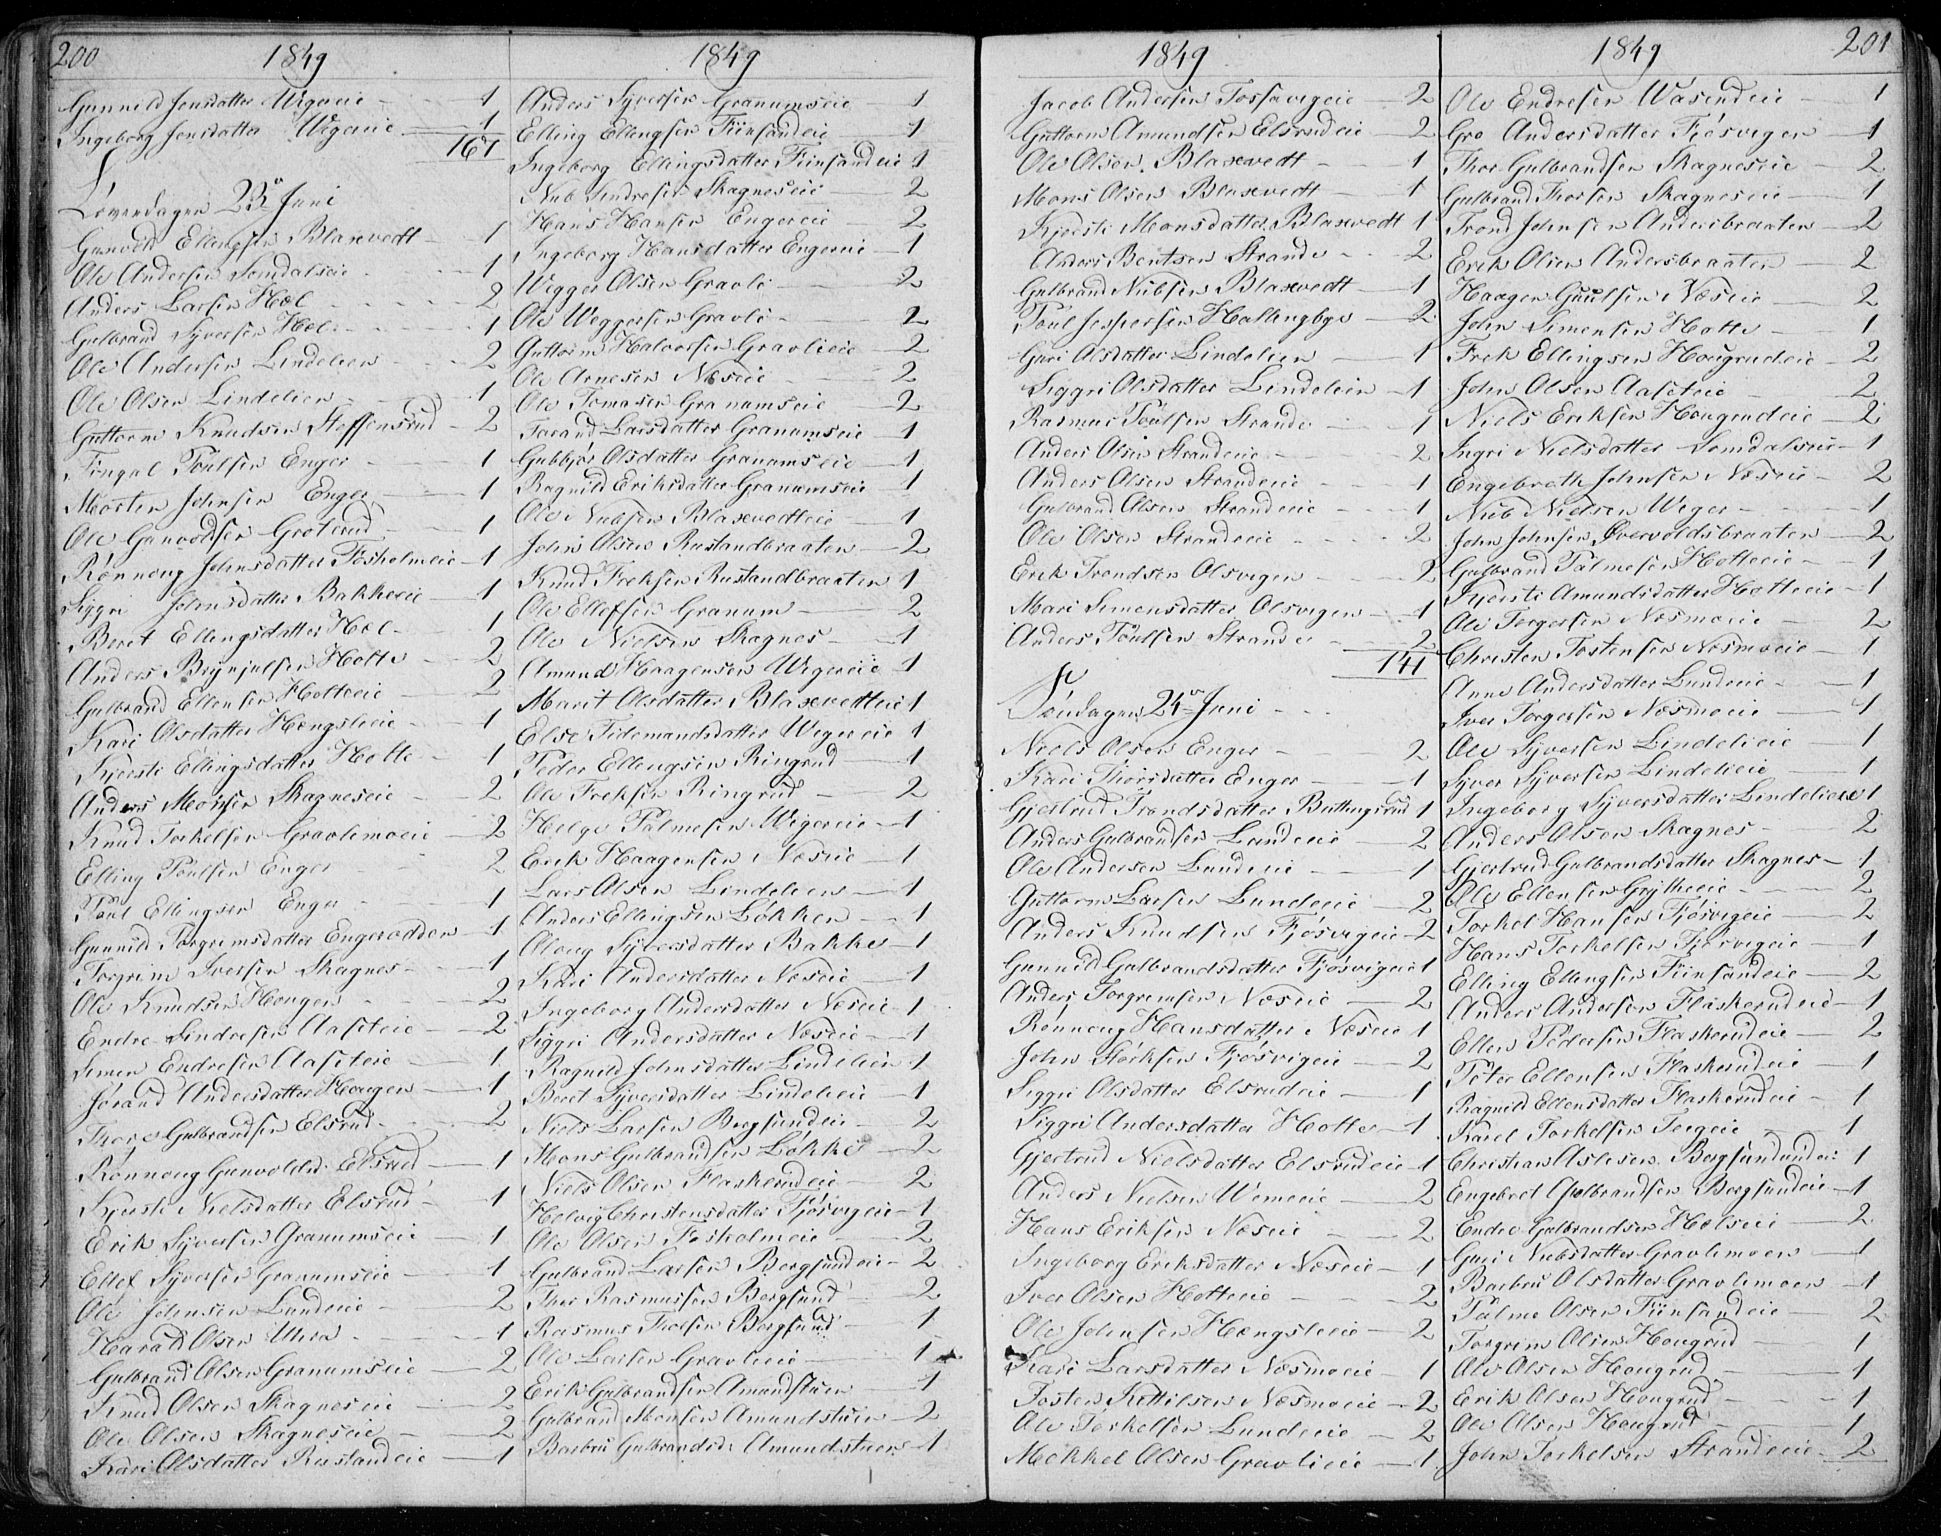 200
1849
Gunnild Jensdatter Wigereie 1
Ingeborg Jensdatter Wigereie 1
167
Løverdagen 23de Juni
Gunvold Ellingsen Blaxvedt 1
Ole Andersen Somdalseie 1
Anders Larsen Hæl 2
Gulbrand Syversen Hæl 1
Ole Andersen Lindelien 2
Ole Olsen Lindelien 1
Guttorm Knudsen Steffensrud 2
Fingal Poulsen Enger 1
Mostin Johnsen Enger 1
Ole Gunvoldsen Groterud 1
Rønnoug Johnsdatter Fosholmeie 1
Siggri Johnsdatter Bakkeeie 1
Beret Ellingsdatter Hæl 1
Anders Brynjulsen Holte 2
Gulbrand Ellensen Holteeie 2
Kari Olsdatter Hængsleeie 1
Kjersti Ellingsdatter Holte 1
Anders Monsen Skagneseie 2
Knud Torkelsen Gravlimoeie 2
Elling Poulsen Enger 2
Poul Ellingsen Enger 1
Gunnild Torgrimsdatter Engerodden 1
Torgrim Iversen Skagnes 1
Ole Knudsen Hougen 2
Endre Endresen Aaseteie 2
Simen Endresen Aaseteie 1
Jørand Andersdatter Hougen 1
Thore Gulbrandsen Elsrud 2
Rønnoug Gunvoldsd. Elsrud 1
Kjersti Nielsdatter Elsrud 1
Erik Syversen Granumseie 1
Ellef Syversen Granumseie 1
Ole Johnsen Lundeie 2
Harald Olsen Uhra 1
Gulbrand Olsen Granumseie 2
Knud Olsen Skagneseie 2
Ole Olsen Skagneseie 2
Kari Olsdatter Rustandeie 1
1849
Anders Syversen Granumseie 1
Elling Ellingsen Fiinsandeie 1
Ingeborg Ellingsdatter Fiinsandeie 1
Nub Endresen Skagneseie 2
Hans Hansen Engereie 2
Ingeborg Hansdatter Engereie 1
Wigger Olsen Gravli 2
Ole Weggersen Gravli 2
Guttorm Halvorsen Gravlieie 2
Ole Arnesen Næseie 2
Ole Tomasen Granumseie 2
Jørand Larsdatter Granumseie 1
Gubbjør Olsdatter Granumseie 1
Ragnild Eriksdatter Granumseie 1
Ole Nubsen Blaxvedteie 1
John Olsen Rustandbraaten 2
Knud Freksen Rustandbraaten 1
Ole Ellefsen Granum 2
Ole Nielsen Skagnes 1
Amund Haagensen Wigereie 1
Marit Olsdatter Blaxvedteie 1
Else Tidemandsdatter Wigereie 1
Peder Ellingsen Ringrud 1
Ole Freksen Ringrud 2
Helge Palmesen Wigereie 1
Erik Haagensen Næseie 1
Lars Olsen Lindelien 1
Anders Ellingsen Løkken 1
Oloug Syversdatter Bakke 1
Kari Andersdatter Næseie 1
Ingeborg Andersdatter Næseie 1
Siggri Andersdatter Næseie 1
Ragnild Johnsdatter Lindelien 1
Beret Syversdatter Lindelieie 1
Niels Larsen Bergsundeie 2
Mons Gulbrandsen Løkke 2
Niels Olsen Flaskerudeie 2
Helvig Christensdatter Fjøsvigeie 1
Ole Olsen Fosholmeie 2
Gulbrand Larsen Bergsundeie 2
Thor Rasmussen Bergsund 2
Rasmus Troesen Bergsund 1
Ole Larsen Gravlieie 1
Erik Gulbrandsen Amundstuen 1
Gulbrand Monsen Amundstuen 2
Barbru Gulbrandsd. Amundstuen 1
1849
Jacob Andersen Fossavigeie 2
Guttorm Amundsen Elsrudeie 2
Ole Olsen Blaxvedt 1
Mons Olsen Blaxvedt 1
Kjersti Monsdatter Blaxvedt 1
Anders Bentsen Strande 2
Gulbrand Nubsen Blaxvedt 1
Poul Jespersen Hallingbye 2
Guri Olsdatter Lindelien 1
Siggri Olsdatter Lindelien 1
Rasmus Poulsen Strande 1
Anders Olsen Strandeie 2
Anders Olsen Strandeie 1
Gulbrand Olsen Strandeie 1
Ole Olsen Strandeie 2
Erik Trondsen Olsvigen 2
Mari Simensdatter Olsvigen 1
Anders Poulsen Strande 2
141
Søndagen 24de Juni
Niels Olsen Enger 2
Kari Thorsdatter Enger 1
Gjertrud Trondsdatter Buttingsrud 1
Anders Gulbrandsen Lundeeie 2
Ole Andersen Lundeeie 1
Guttorm Larsen Lundeeie 2
Anders Knudsen Fjøsvigeie 2
Gunnild Gulbrandsdatter Fjøsvigeie 1
Anders Torgrimsen Næseie 2
Rønnoug Hansdatter Næseie 1
John Størksen Fjøsvigeie 2
Siggri Olsdatter Elsrudeie 1
Siggri Andersdatter Holte 1
Gjertrud Nielsdatter Elsrudeie 1
Anders Nielsen Wemeeie 2
Hans Eriksen Næseie 2
Ingeborg Eriksdatter Næseie 1
Iver Olsen Holteeie 2
Ole Johnsen Hængsleeie 2
Kari Larsdatter Næsmoeie 1
Tosten Kittilsen Næsmoeie 2
Ole Torkelsen Lundeeie 2
Mekkel Olsen Gravlieie 1
1849
201
Ole Endresen Wasendeie 1
Gro Andersdatter Fjøsvigen 1
Thor Gulbrandsen Skagneseie 2
Gulbrand Thorsen Skagneseie 1
Trond Johnsen Andersbraaten 2
Erik Olsen Andersbraaten 2
Haagen Guulsen Næseie 2
John Simensen Holte 1
Frek Ellingsen Hougrudeie 2
John Olsen Aaseteie 2
Niels Eriksen Hougrudeie 2
Ingri Nielsdatter Somdalseie 1
Engebreth Johnsen Næseie 2
Nub Nielsen Weger 1
John Johnsen Overvoldsbraaten 2
Gulbrand Palmesen Holteeie 1
Kjersti Amundsdatter Holteeie 1
Ole Torgersen Næsmoeie 2
Christen Tostensen Næsmoeie 1
Anne Andersdatter Lundeie 1
Iver Torgersen Næsmoeie 1
Ole Syversen Lindelieie 1
Syver Syversen Lindelieie 1
Ingeborg Syversdatter Lindelieie 1
Anders Olsen Skagnes 2
Gjertrud Gulbrandsdatter Skagnes 1
Ole Ellensen Grytheeie 2
Torkel Hansen Fjøsvigeie 2
Hans Torkelsen Fjøsvigeie 1
Elling Ellingsen Fiinsandeie 2
Anders Andersen Flaskerudeie 1
Ellen Pedersen Flaskerudeie 2
Peter Ellensen Flaskerudeie 1
Ragnild Ellensdatter Flaskerudeie 1
Karel Torkelsen Teigeie 1
Christian Aslesen Bergsundeie 1
Engebret Gulbrandsen Bergsundeie 1
Endre Gulbrandsen Hølseie 2
Guri Nubsdatter Gravlimoen 1
Barbru Olsdatter Gravlimoen 1
Palme Olsen Fiinsandeie 2
Torgrim Olsen Hougrud 1
Ole Olsen Hougrud 1
Erik Olsen Hougrud 1
Ole Olsen Hougrud 1
John Torkelsen Strandeeie 2